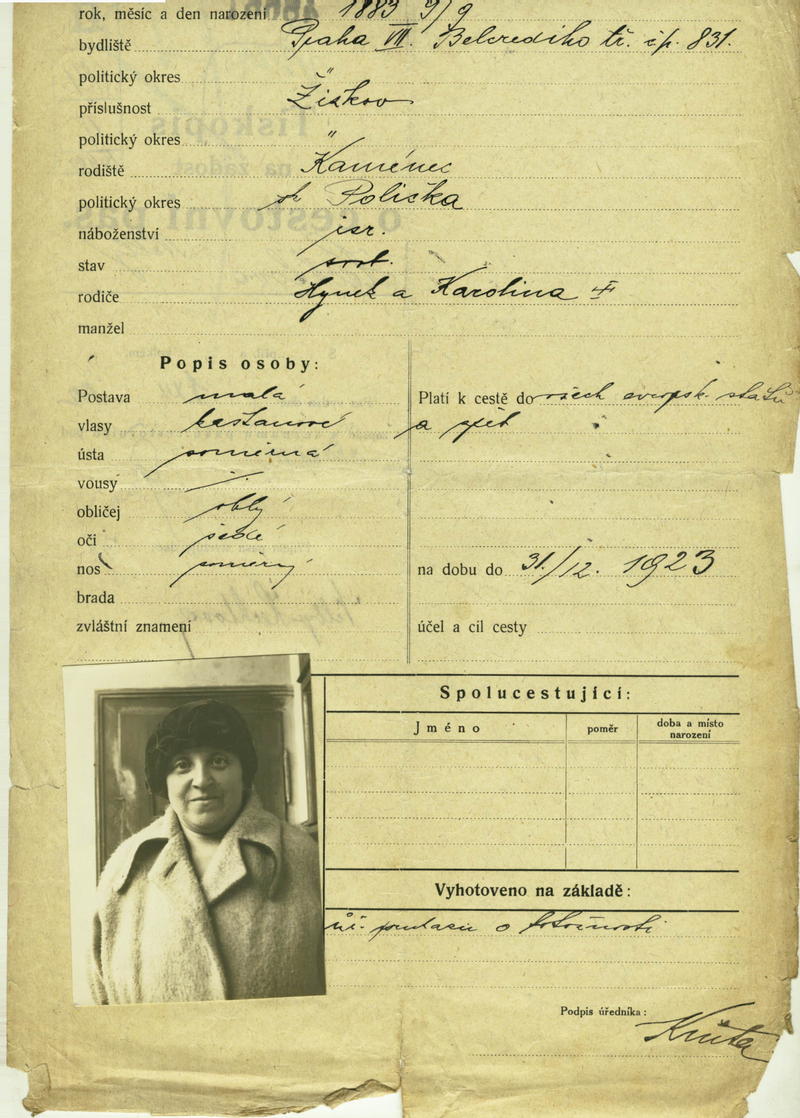 rok, měsíc a den narození 1883 9/9
bydliště Praha VII. Belcrediho tř. čp. 831.
politický okres "
příslušnost Žižkov
politický okres "
rodiště Kaménec
politický okres Polička
náboženství isr.
stav svob.
rodiče Hynek a Karolina
manžel
Popis osoby:
Postava malá
vlasy kaštanové
ústa souměrná
vousy
obličej oblý
oči šedé
nos souměrný
brada
zvláštní znamení
Platí k cestě do všech evropsk. států
a zpět
na dobu do 31/12. 1923
účel a cíl cesty
Spolucestující:
Jméno poměr doba a místo narození
Vyhotoveno na základě:
o totožnosti
Podpis úředníka: